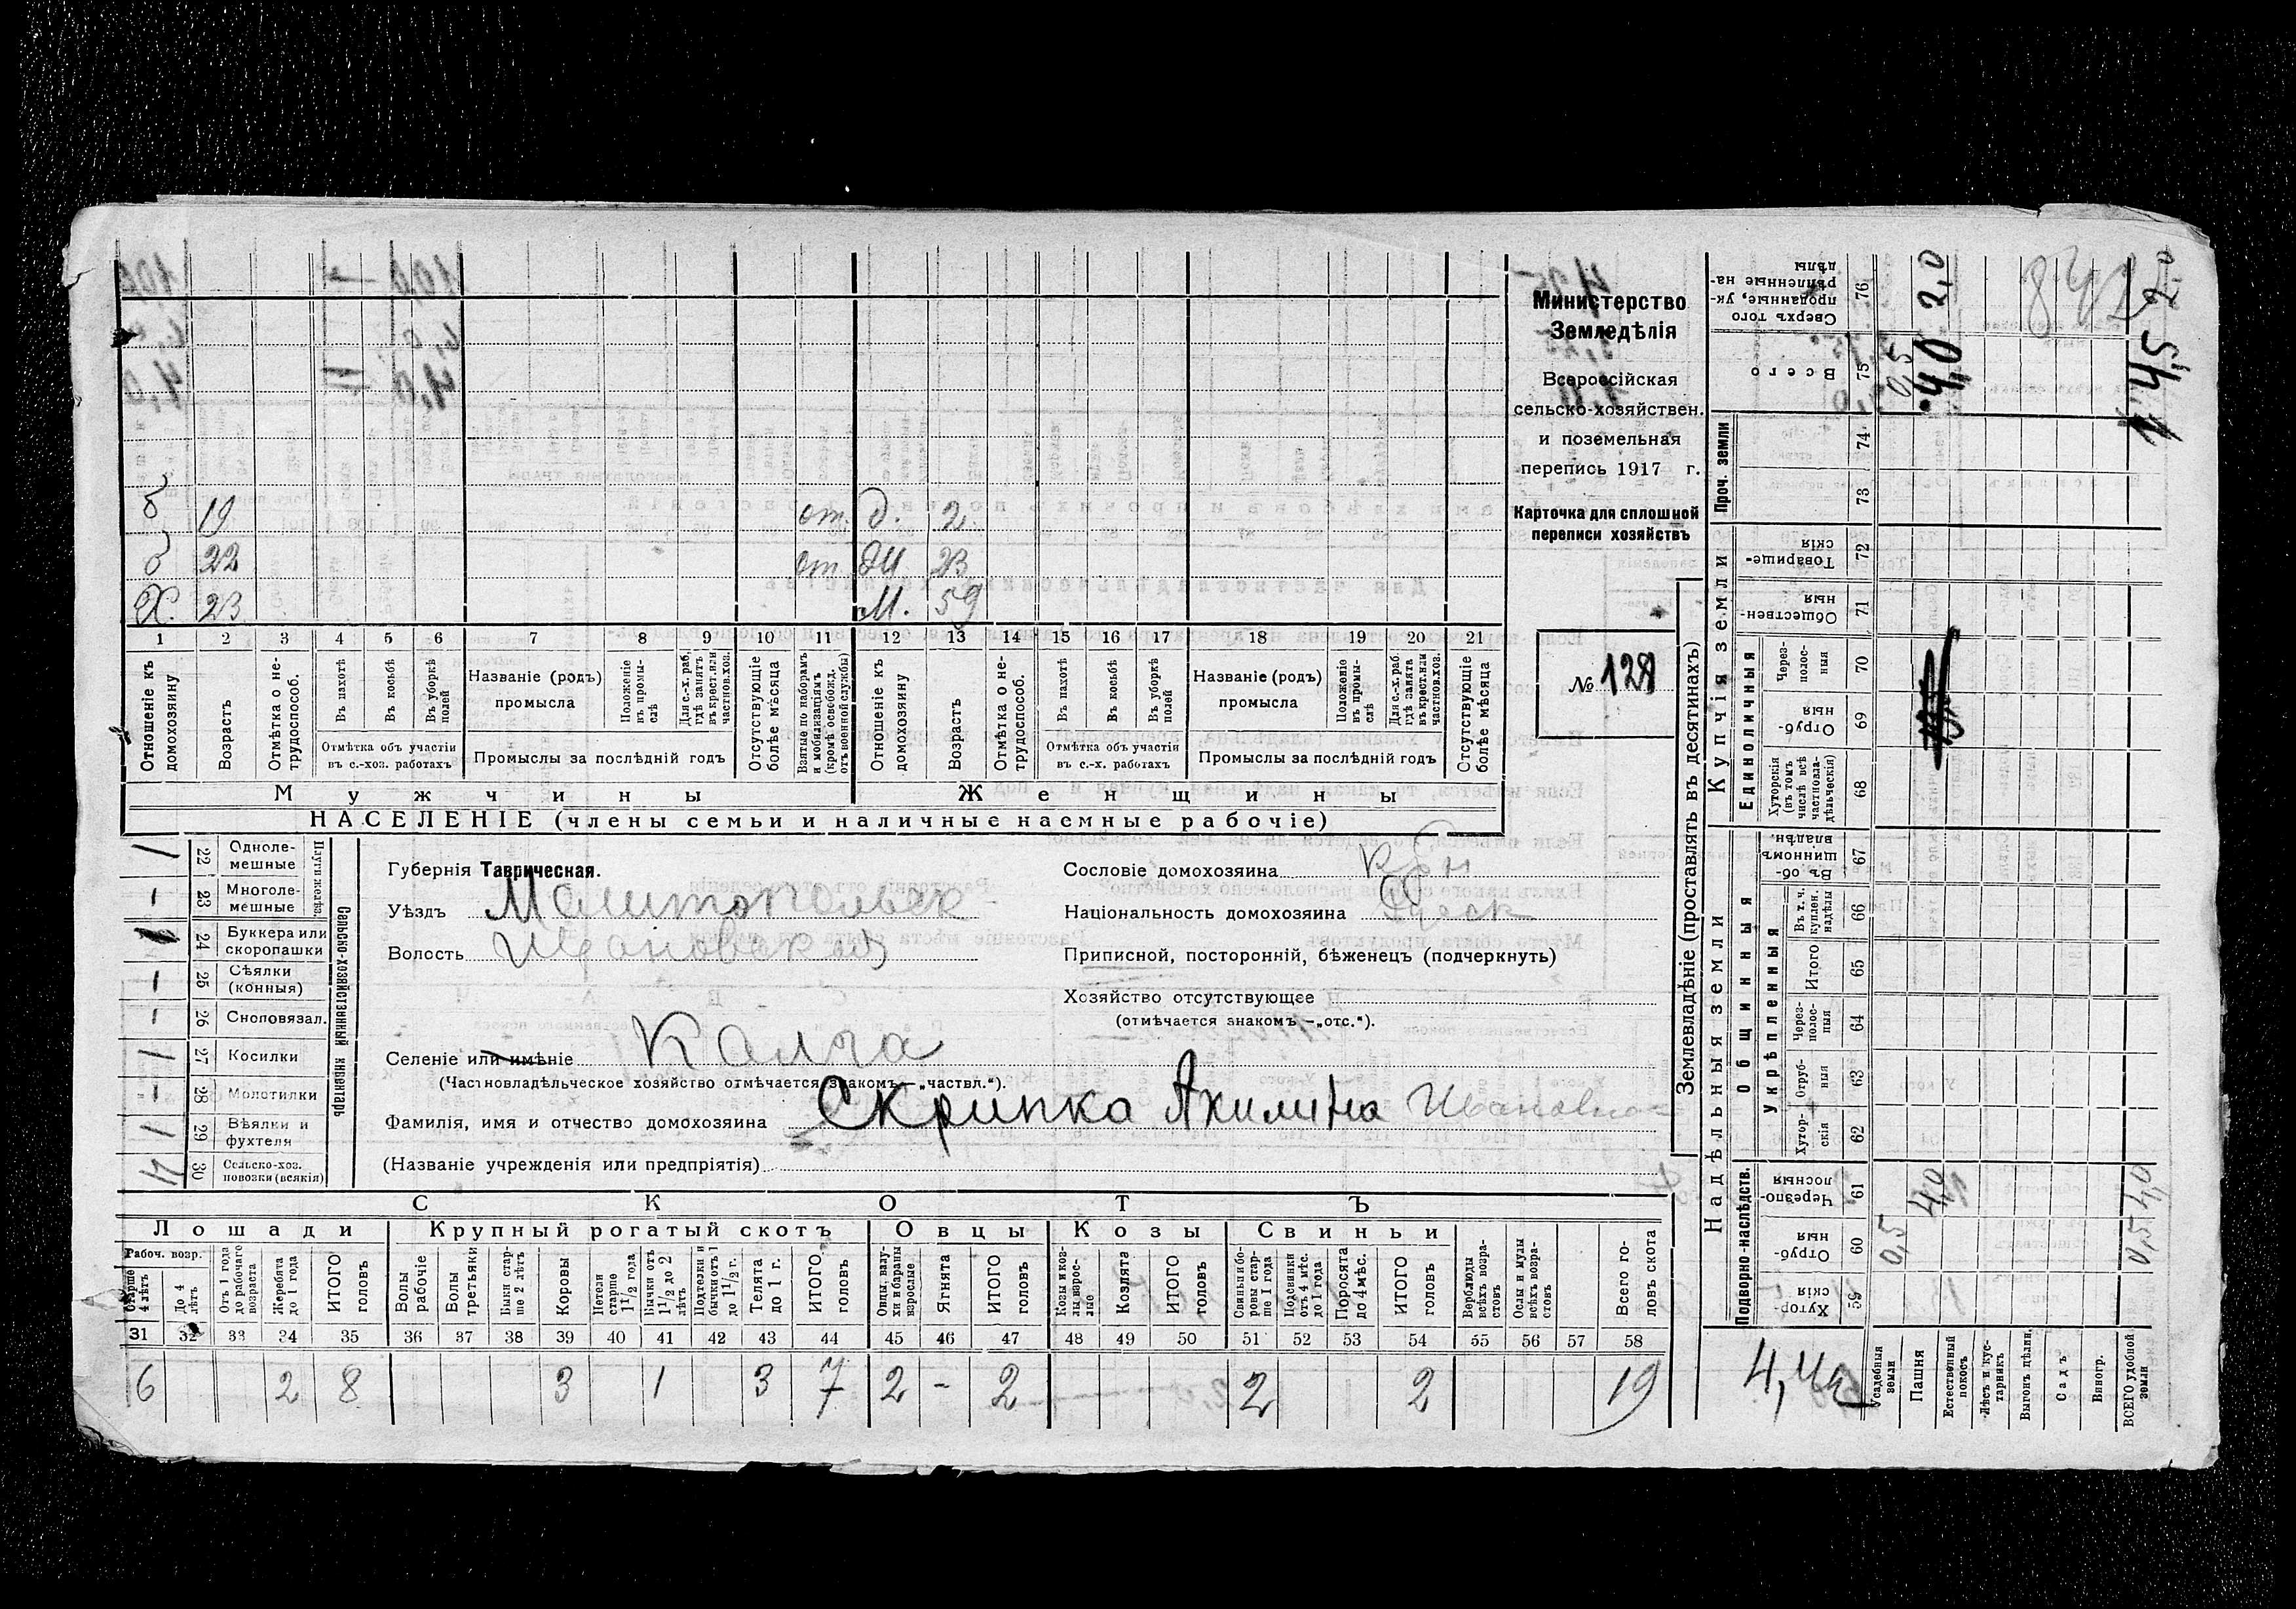 Министерство
Земледѣлія
Всероссійская
сельско-хозяйствен.
и поземельная
перепись 1917 г.
Карточка для сплошной
переписи хозяйствъ
№ 128
б 19 от. д. 2
б 22 от. дч 23
Х. 23 М. 59
1 2 3 4 5 6 7 8 9 10 11 12 13 14 15 16 17 18 19 20 21
Отношеніе къ домохозяину
Возрастъ
Отмѣтка о не-трудоспособ.
Въ пахотѣ
Въ косьбѣ
Въ уборкѣ полей
Отмѣтка объ участіи въ с.-хоз. работахъ
Названіе (родъ) промысла
Положеніе въ промы-слѣ
Для с.-х. раб. гдѣ занятъ въ крест. или частнов. хоз.
Промыслы за послѣдній годъ
Отсутствующіе болѣе мѣсяца
Взятые по наборамъ и мобилизаціямъ (кромѣ освобожд. отъ военной службы)
Отношеніе къ домохозяину
Возрастъ
Отмѣтка о не-трудоспособ.
Въ пахотѣ
Въ косьбѣ
Въ уборкѣ полей
Отмѣтка объ участіи въ с.-х. работахъ
Названіе (родъ) промысла
Положеніе въ промы-слѣ
Для с.-х. раб. гдѣ занята въ крест. или частнов. хоз.
Промыслы за послѣдній годъ
Отсутствующіе болѣе мѣсяца
Мужчины Женщины
НАСЕЛЕНІЕ (члены семьи и наличные наемные рабочіе)
Сельско-хозяйственный инвентарь
Плуги желѣз.
1 22 Однолемешные
- 23 Многолемешные
24 Буккера или скоропашки
- 25 Сѣялки (конныя)
- 26 Сноповязал.
1 27 Косилки
- 28 Молотилки
1 29 Вѣялки и фухтеля
30 Сельско-хоз. повозки (всякія)
Губернія Таврическая.
Уѣздъ Мелитопольск
Волость
Селеніе или имѣніе Калга
(Частновладѣльческое хозяйство отмѣчается знакомъ—„частвл.“).
Фамилія, имя и отчество домохозяина Скрипка Акилина Ивановна
(Названіе учрежденія или предпріятія)
Сословіе домохозяина
Національность домохозяина
Приписной, посторонній, бѣженецъ (подчеркнуть)
Хозяйство отсутствующее
(отмѣчается знакомъ —„отс.“).
СКОТЪ
Лошади Крупный рогатый скотъ Овцы Козы Свиньи
Рабоч. возр.
Старше 4 лѣтъ
До 4 лѣтъ
Отъ 1 года до рабочаго возраста
Жеребята до 1 года
ИТОГО головъ
Волы рабочіе
Волы третьяки
Быки старше 2 лѣтъ
Коровы
Нетели старше 1 1/2 года
Бычки отъ 1 1/2 до 2 лѣтъ
Подтелки и бычки отъ 1 до 1 1/2 г.
Телята до 1 г.
ИТОГО головъ
Овцы, валухи и бараны взрослые
Ягнята
ИТОГО головъ
Козы и козлы взрослые
Козлята
ИТОГО головъ
Свиньи и боровы старше 1 года
Подсвинки отъ 4 мѣс. до 1 года
Поросята до 4 мѣс.
ИТОГО головъ
Верблюды всѣхъ возрастовъ
Ослы и мулы всѣхъ возрастовъ
Всего головъ скота
31 32 33 34 35 36 37 38 39 40 41 42 43 44 45 46 47 48 49 50 51 52 53 54 55 56 57 58
6 2 8 3 1 3 7 2 - 2 2 2 19
Землевладѣніе (проставлять въ десятинахъ)
Надѣльныя земли Купчія земли Проч. земли
Подворно-наслѣдств.
Общинныя
Укрѣпленныя
Единоличныя
Хуторскія 59
Отрубныя 60
Черезполосныя 61
Хуторскія 62
Отрубныя 63
Черезполосныя 64
Итого 65
Въ т. ч. куплен. надѣлы 66
Въ общинномъ владѣн. 67
Хуторскія (въ томъ числѣ всѣ частновладѣльческія) 68
Отрубныя 69
Черезполосныя 70
Общественныя 71
Товарищескія 72
73
74
Всего 75
Сверхъ того проданные, укрѣпленные надѣлы 76
Усадебныя земли 0,5 0,5
Пашня 4,0 4,0 2,0
Естественный покосъ
Лѣсъ и кустарникъ
Выгонъ дѣлин.
Садъ
Виногр.
ВСЕГО удобной земли 0,5 4,0 4,5 2,0